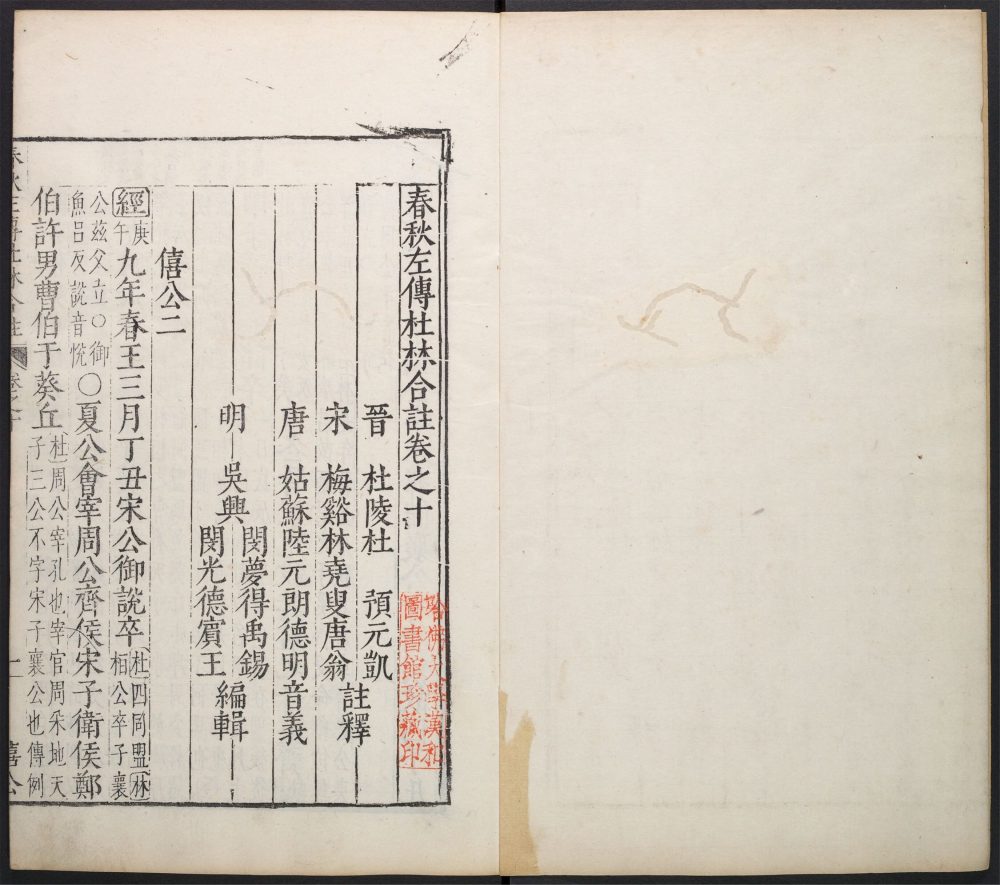 春秋左傳杜林合註卷之十
晉 杜陵杜 預元凱
宋 梅谿林堯叟唐翁
註釋
唐 姑蘇陸元朗德明音義
明 吳興
閔夢得禹錫
閔光德賓王
編輯
僖公二
經
庚
午
九年春王三月丁丑宋公御說卒
杜四同盟林
桓公卒子襄
公茲父立○御
魚呂反說音悅
○夏公會宰周公齊侯宋子衛侯鄭
伯許男曹伯于葵丘
杜周公宰孔也宰官周采地天
子三公不字宋子襄公也傳例
春秋左傳杜林合註
卷之十
一
僖公
哈佛大學漢和
圖書館珍藏印